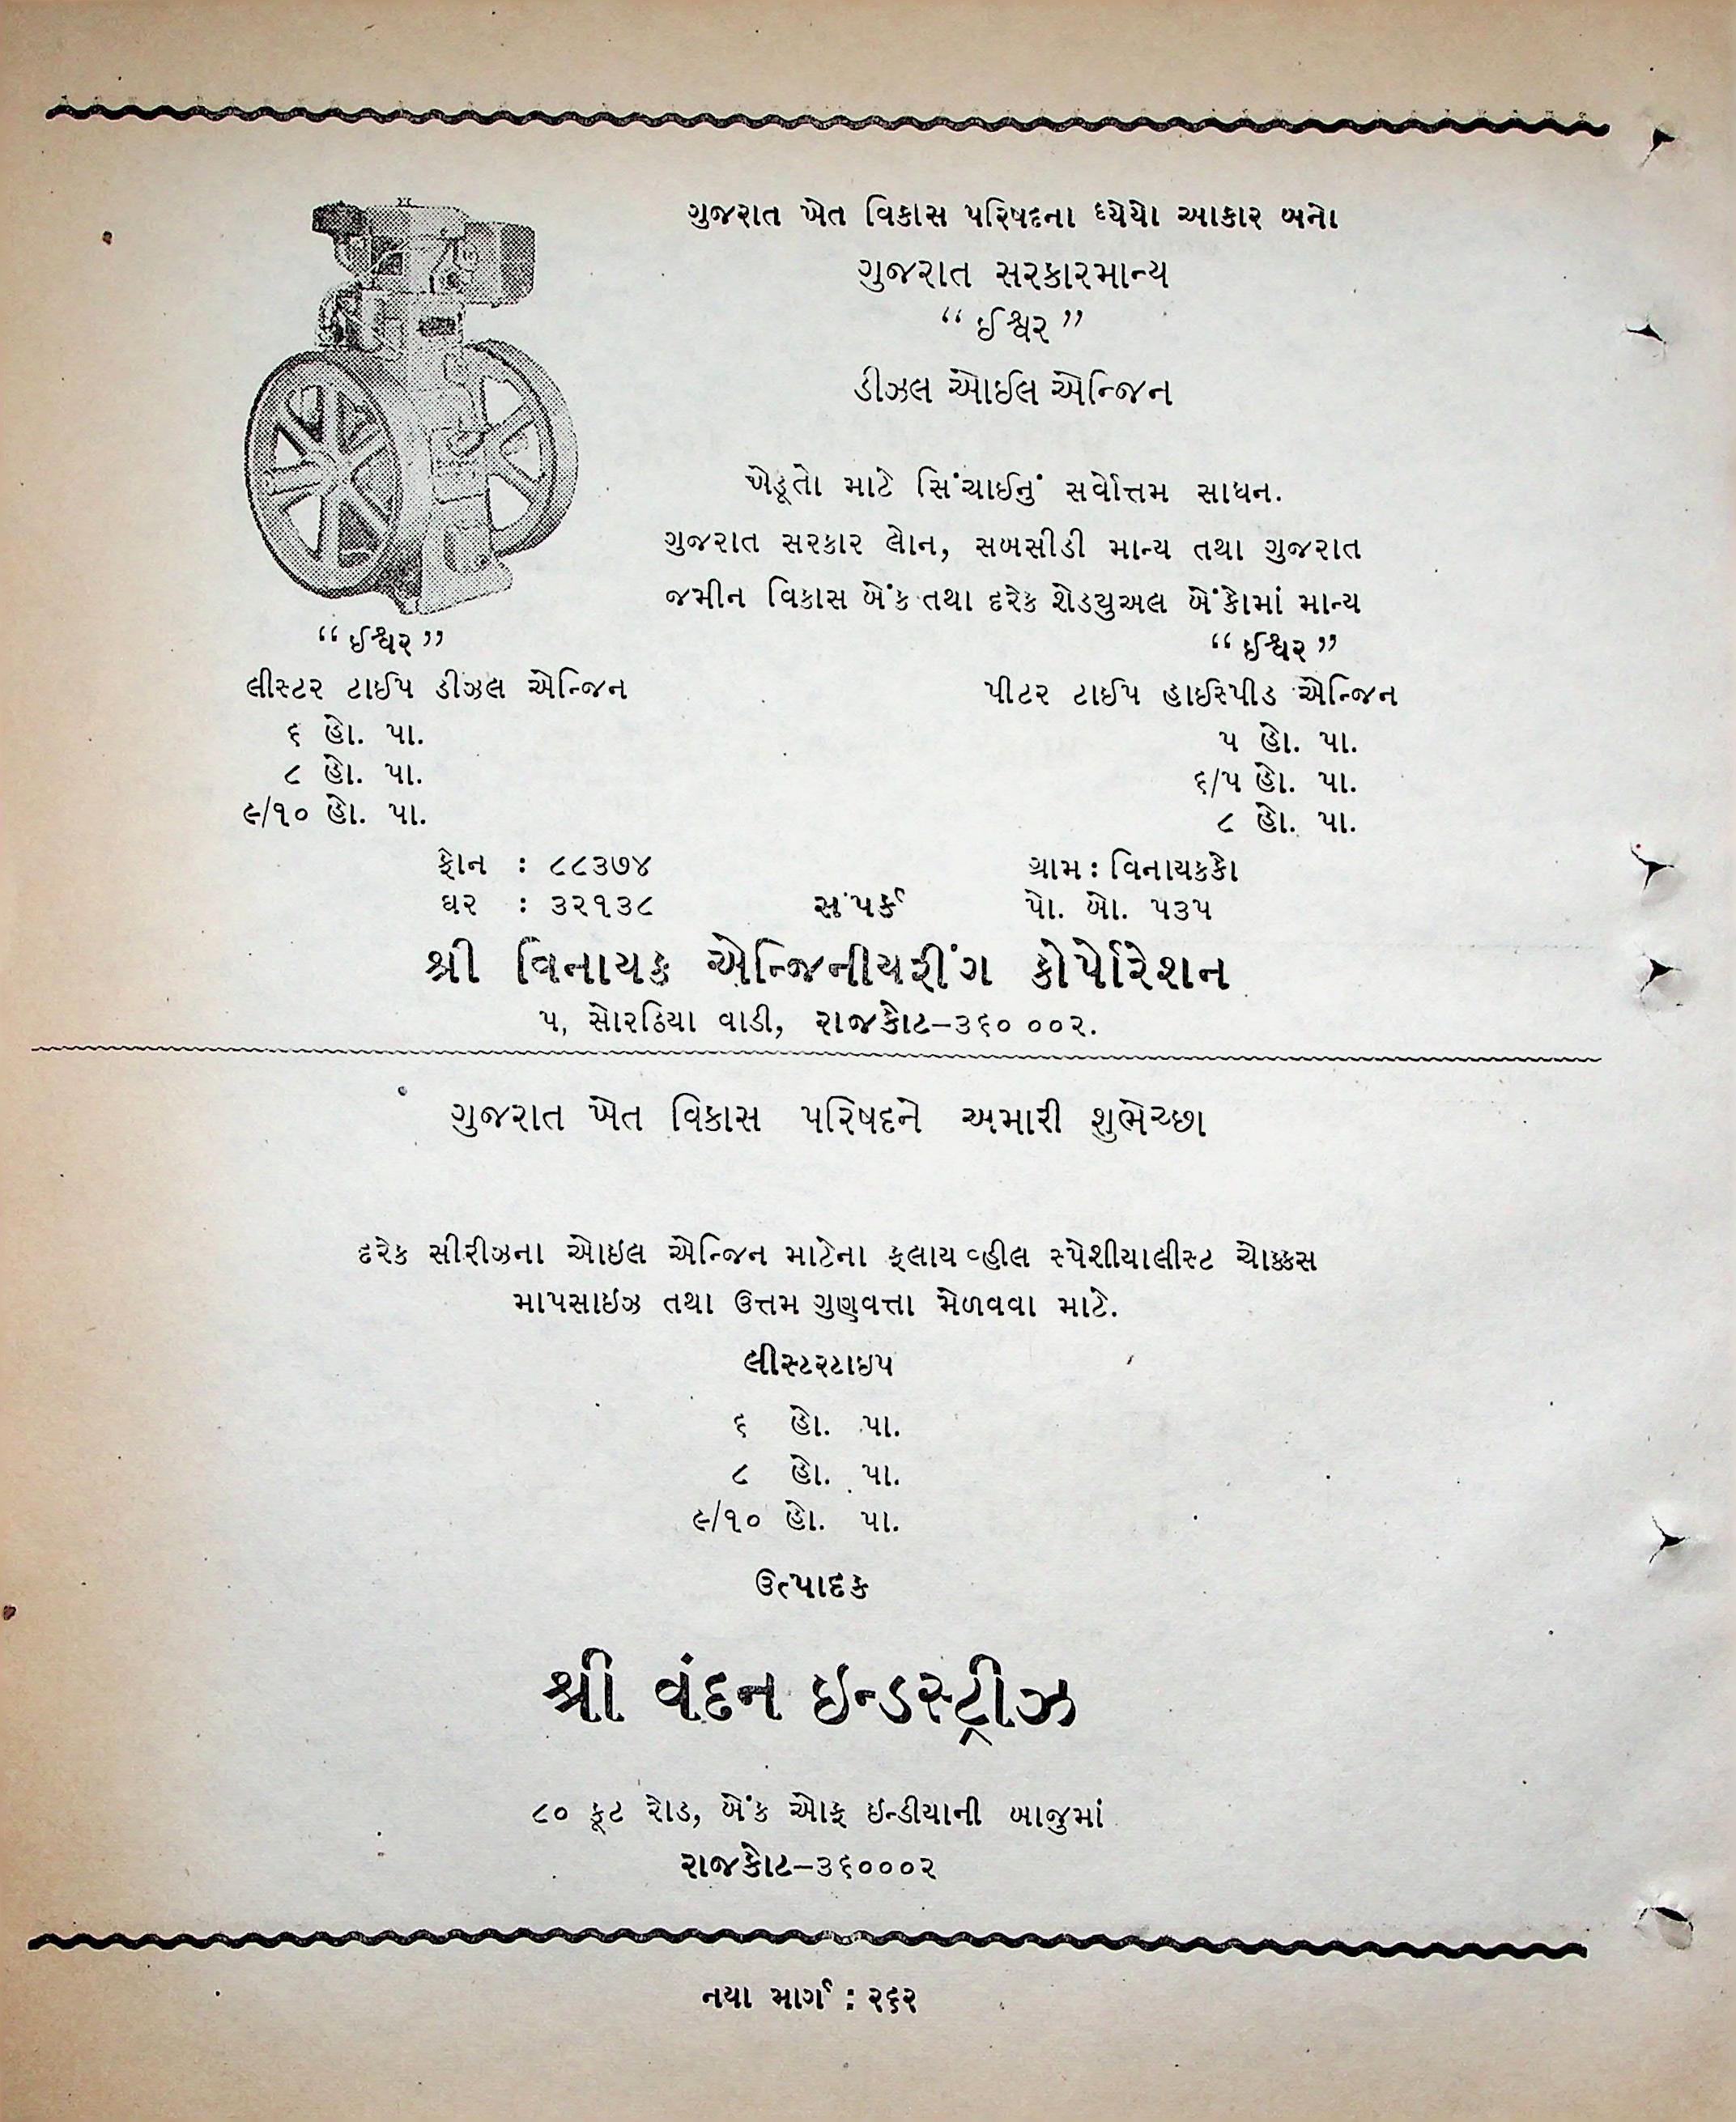 ગુજરાત ખેત વિકાસ પરિષદના ધ્યેયો આકાર બનો
ગુજરાત સરકારમાન્ય
“ ઈશ્વર ”
ડીઝલ ઓઈલ એન્જિન
ખેડૂતો માટે સિંચાઈનું સર્વોત્તમ સાધન.
ગુજરાત સરકાર લોન, સબસીડી માન્ય તથા ગુજરાત
જમીન વિકાસ બેંક તથા દરેક શેડયુઅલ બેંકોમાં માન્ય
“ ઈશ્વર ”
લીસ્ટર ટાઈપ ડીઝલ એન્જિન
૬ હો. પા.
૮ હો. પા.
૯/૧૦ હો. પા.
“ ઈશ્વર ”
પીટર ટાઈપ હાઈસ્પીડ એન્જિન
૫ હો. પા.
૬/૫ હો. પા.
૮ હો. પા.
ફોન : ૮૮૩૭૪
ઘર : ૩૨૧૩૮
સંપર્ક
ગ્રામ : વિનાયકકો
પો. બો. ૫૩૫
શ્રી વિનાયક એન્જિનીયરીંગ કોર્પોરેશન
૫, સોરઠિયા વાડી, રાજકોટ–૩૬૦ ૦૦૨.
ગુજરાત ખેત વિકાસ પરિષદને અમારી શુભેચ્છા
દરેક સીરીઝના ઓઇલ એન્જિન માટેના ફલાય વ્હીલ સ્પેશીયાલીસ્ટ ચોક્કસ
માપસાઇઝ તથા ઉત્તમ ગુણવત્તા મેળવવા માટે.
લીસ્ટરટાઇપ
૬ હો. પા.
૮ હો. પા.
૯/૧૦ હો. પા.
ઉત્પાદક
શ્રી વંદન ઇન્ડસ્ટ્રીઝ
૮૦ ફૂટ રોડ, બેંક ઓફ ઇન્ડીયાની બાજુમાં
રાજકોટ–૩૬૦૦૦૨
નયા માર્ગ : ૨૬૨